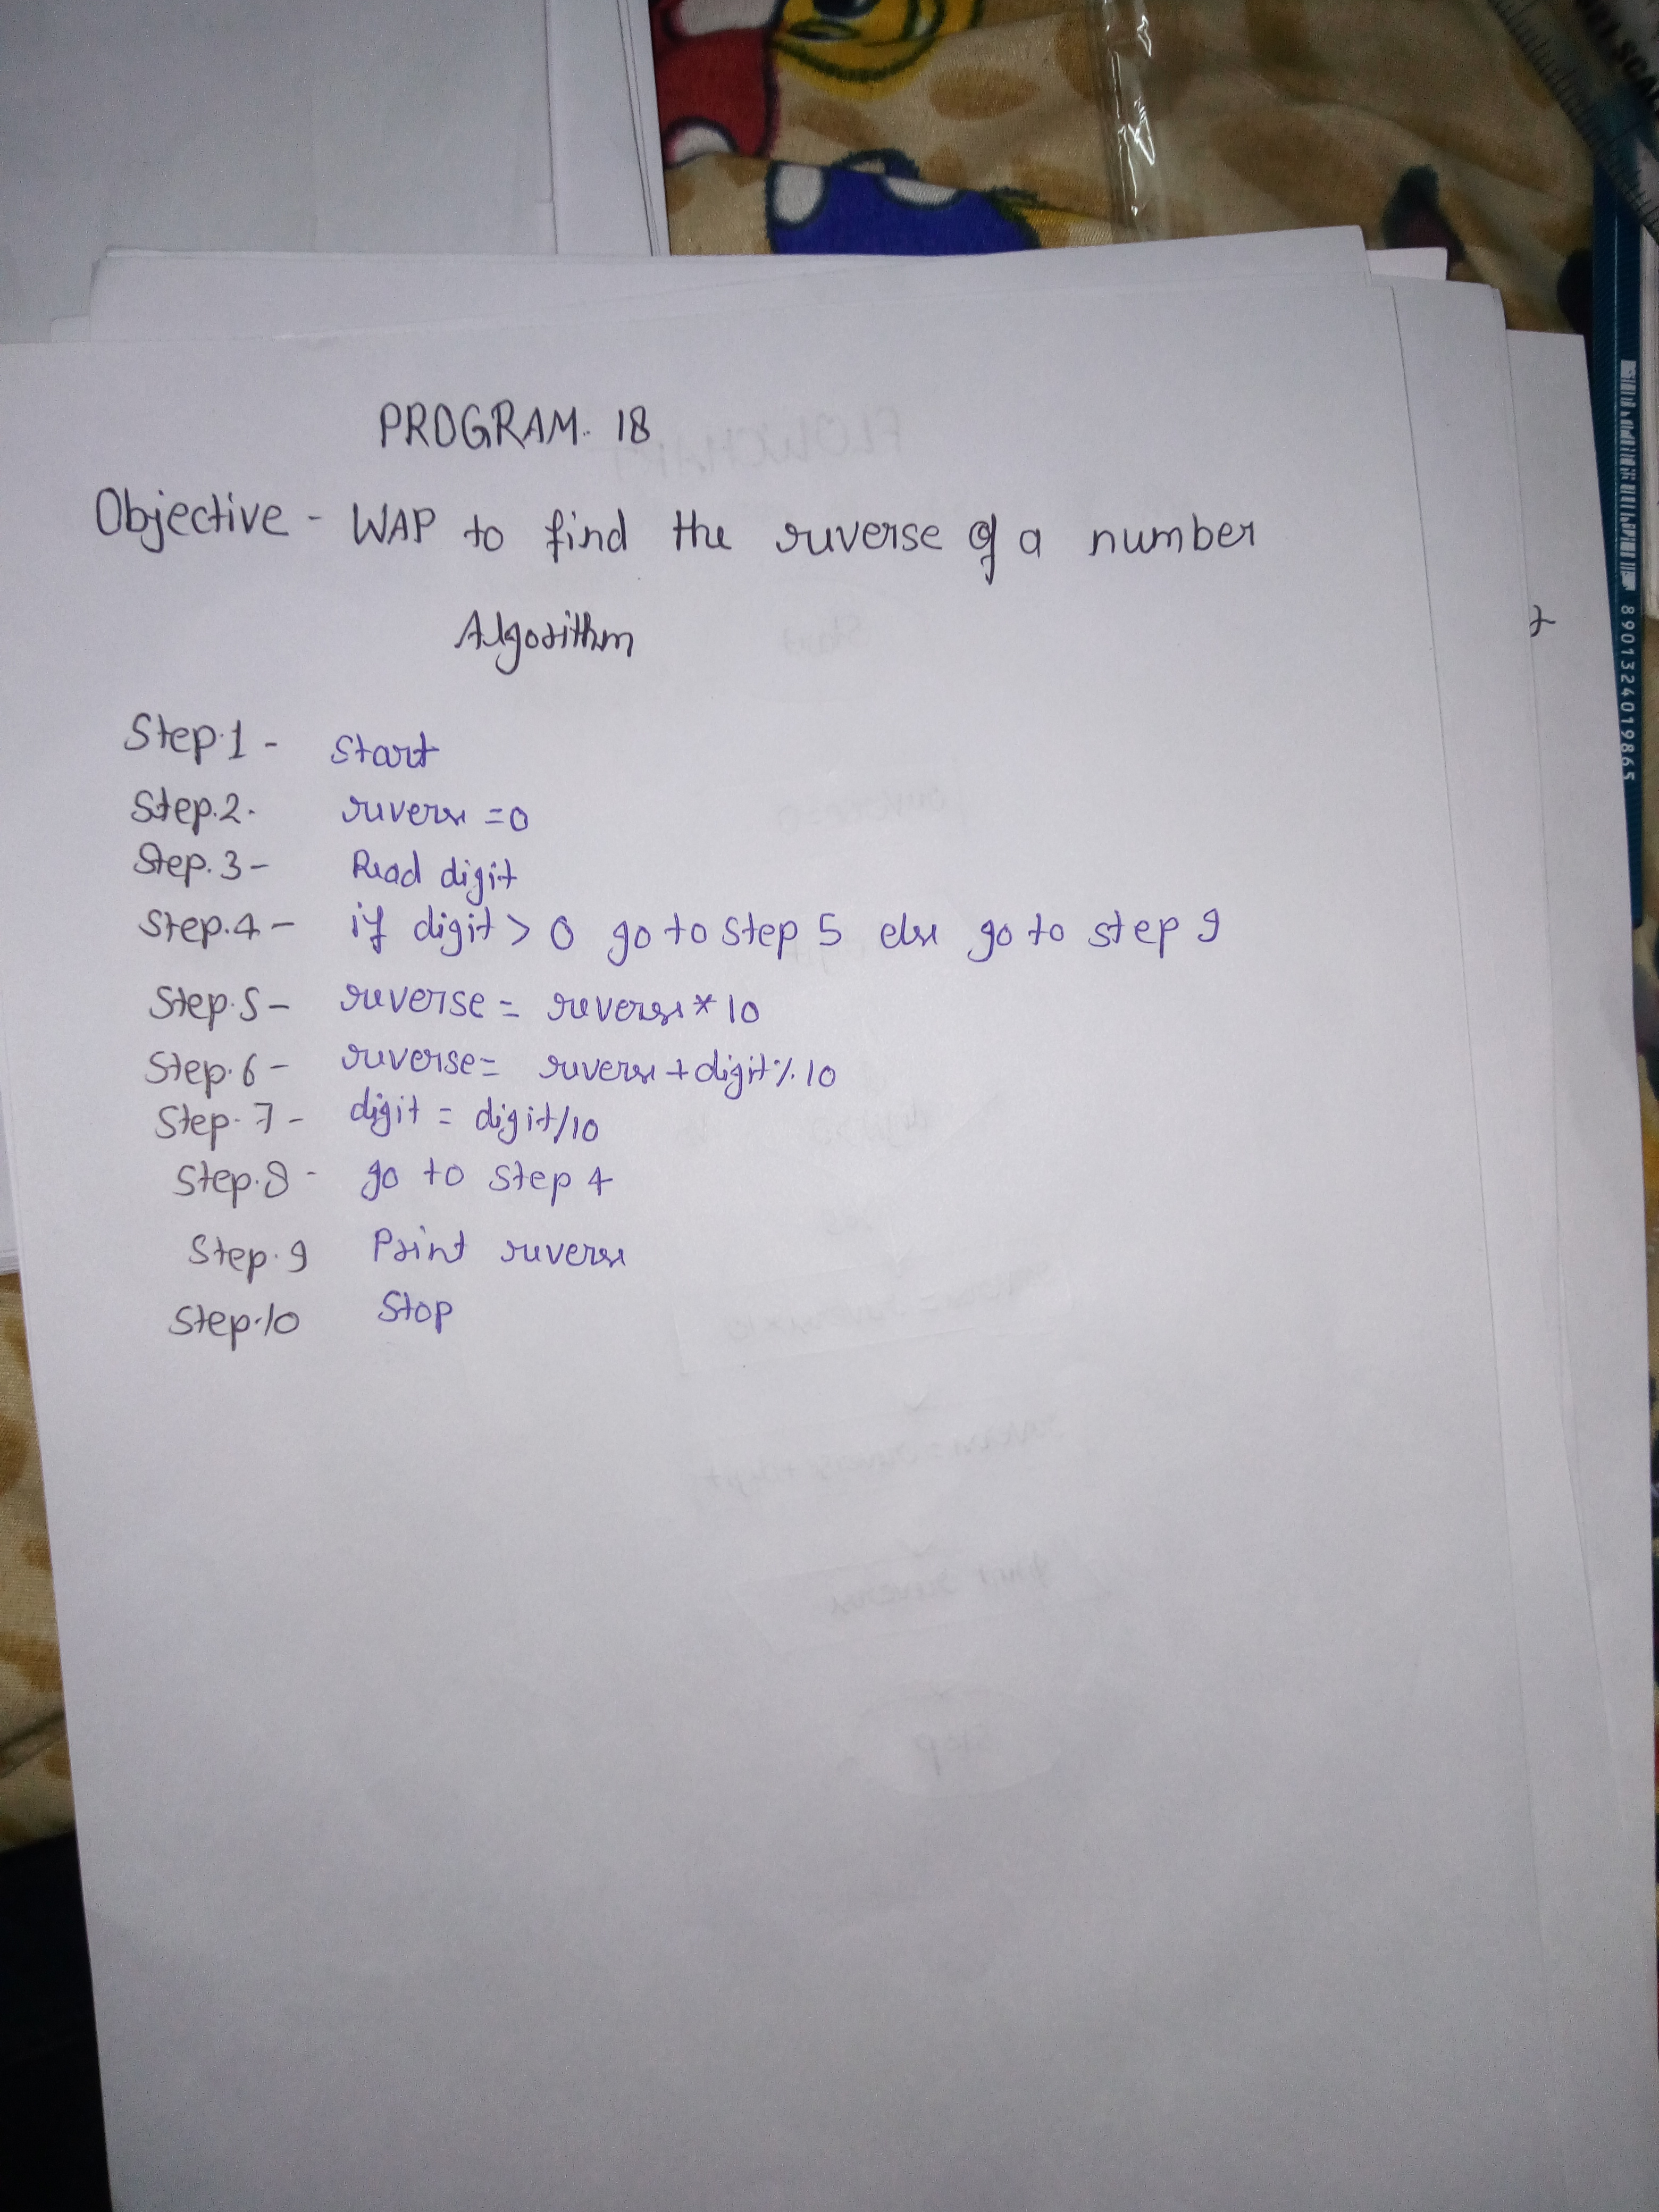 PROGRAM. 18
Objective - WAP to find the reverse of a number
Algorithm
Step.1 - Start
Step.2. reverse =0
Step.3 - Read digit
Step.4 - if digit > 0 go to step 5 else go to step 9
Step.5 - reverse = reverse * 10
Step.6 - reverse = reverse + digit % 10
Step.7 - digit = digit/10
Step.8 - go to step 4
Step.9 Print reverse
Step.10 Stop
8901324019865